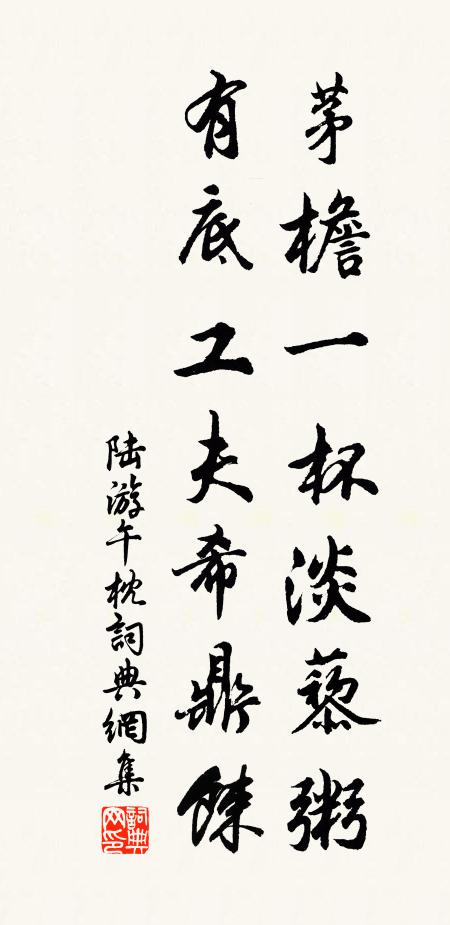 茅檐一杯淡藜粥
有底工夫希鼎餗
陆游午枕詞典網集
詞典网印